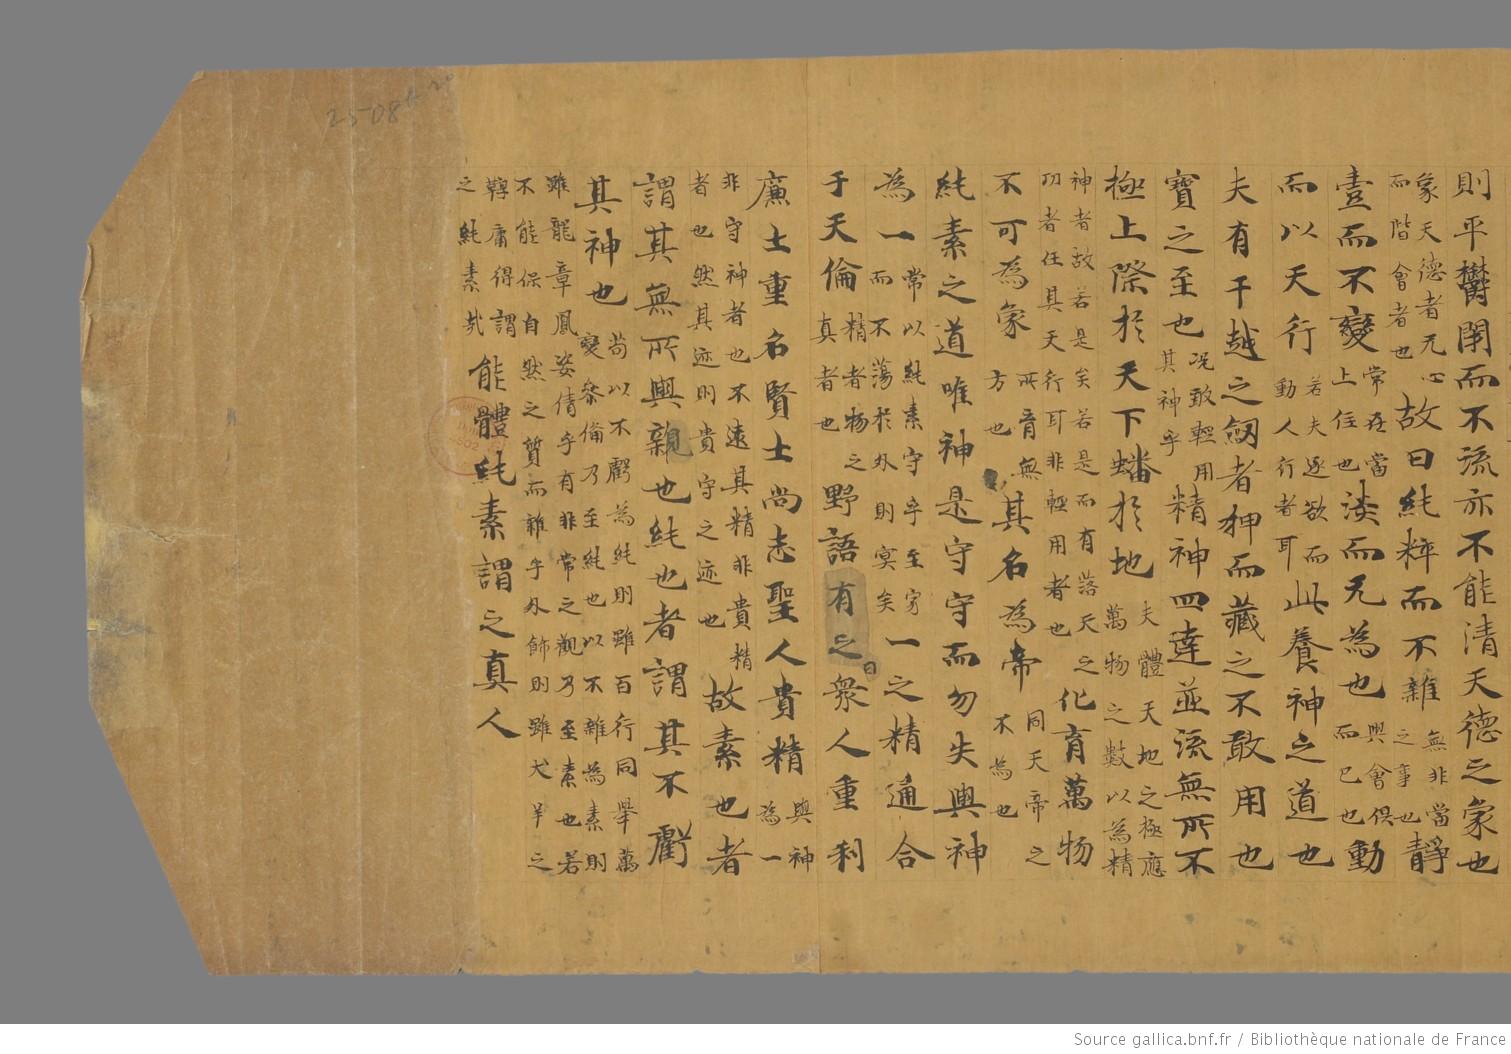 則平欝閇而不流亦不能清天德之象也
象天德者无心而階會者也故曰純粹而不雜無非當之事也靜
壹而不變常在當上住也淡而无為也與會俱而已也動
而以天行若夫逐欲而動人行者耳此養神之道也
夫有干越之劔者狎而藏之不敢用也
寶之至也况敢輕用其神乎精神四達並流無所不
極上際於天下蟠於地夫體天地之極應萬物之數以為精
神者故若是矣若是而有落天之功者任具天行耳非輕用者也化育萬物
不可為象所育無方也其名為帝同天帝之不為也
純素之道唯神是守守而勿失與神
為一常以純素守乎至寂而不蕩於外則冥矣一之精通合
于天倫精者物之真者也野語有之曰衆人重利
廉士重名賢士尚志聖人貴精與神為一
非守神者也不遠其精非貴精者也然其迹則貴守之迹也故素也者
謂其無所與親也純也者謂其不虧
其神也苟以不虧為純則雖百行同舉萬變參倫乃至純也以不雜為素則
雖龍章鳳姿倩乎有非常之觀乃至素也若不能保自然之質而雜乎外飾則雖犬羊之
鞟庸得謂之純素哉能體純素謂之真人
2508
Source gallica.bnf.fr / Bibliothèque nationale de France